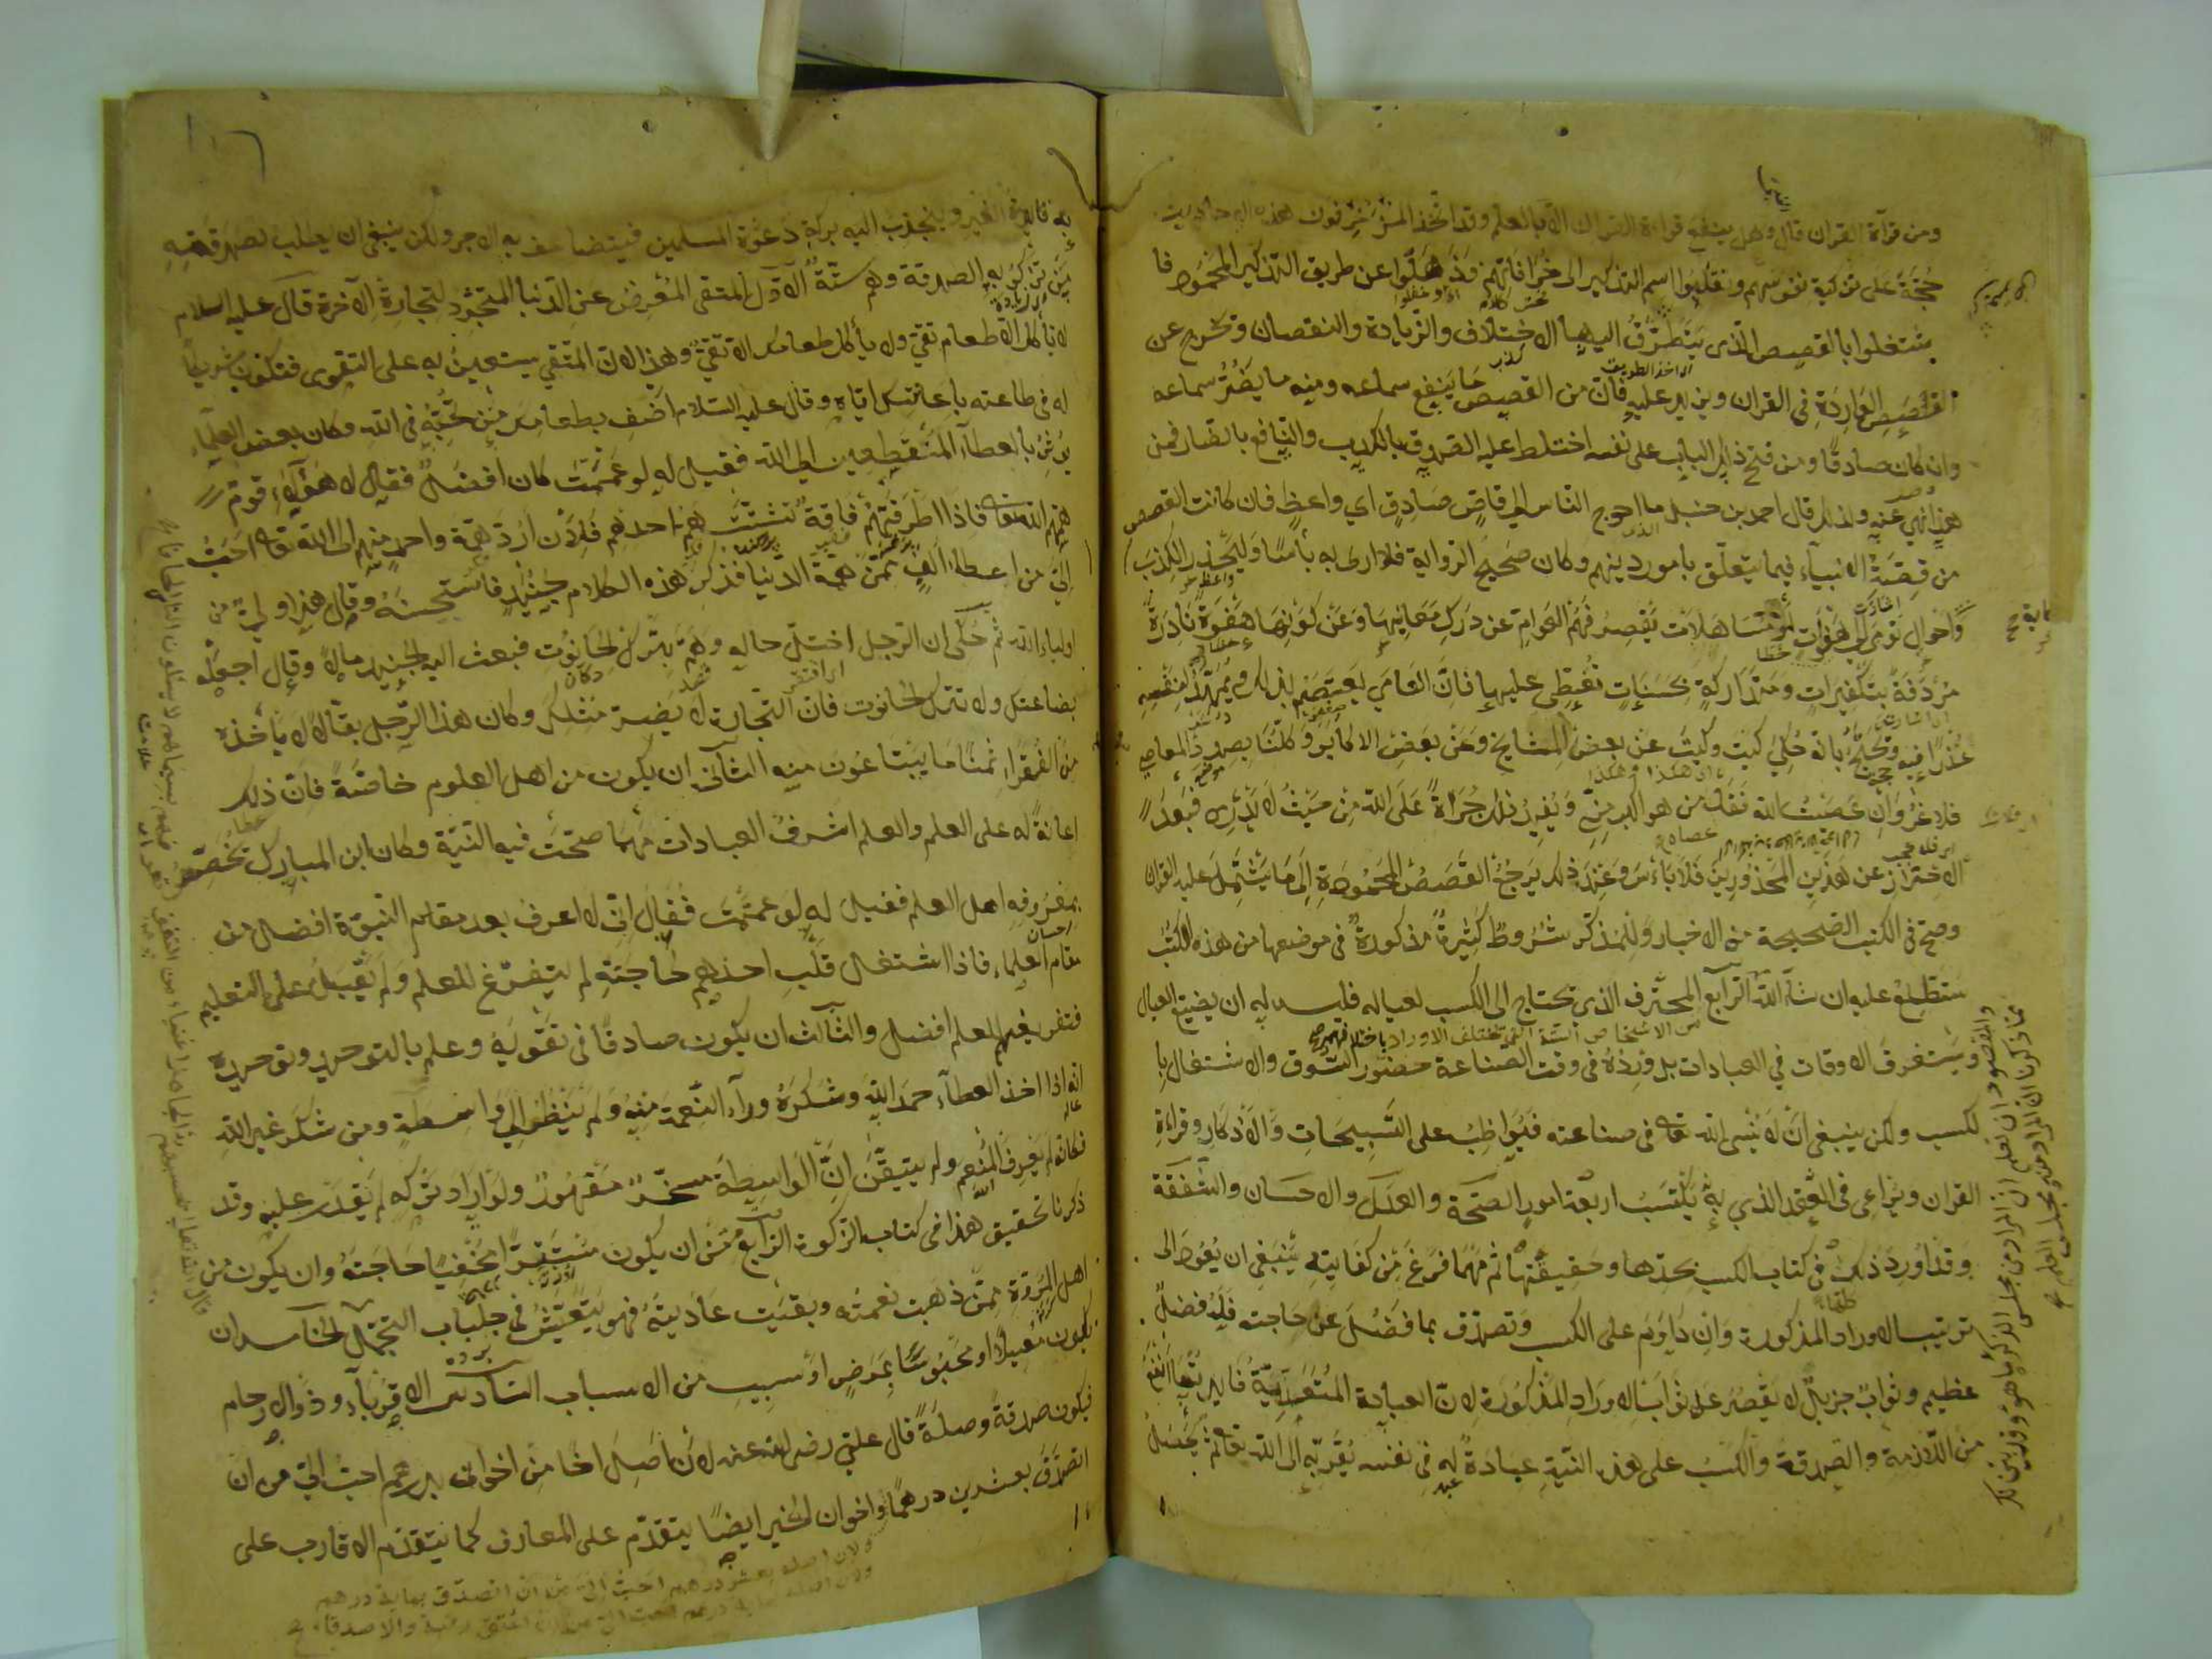 ومن قرآة القران قال وهل ينفع قراءة القران الا بالعلم وقد اتخذ المزخرفون هذه الاحاديث
حجة على تزكية نفوسهم ونقلوا اسم التذكير الى خرافاتهم وذهلوا عن طريق التذكير المحمود فا
شتغلوا بالقصص الذى يتطرق اليها الاختلاف والزيادة والنقصان وتخرج عن
القصص الواردة فى القران ويزيد عليه فان من القصص ما ينفع سماعه ومنه ما يضر سماعه
وان كان صادقا ومن فتح ذلك الباب على نفسه اختلط عليه الصدق بالكذب والنافع بالضار فمن
هذا نهى عنه ولذلك قال احمد بن حنبل ما احوج الناس الى قاص صادق اي واعظ فان كانت القصص
من قصة الانبياء فيما يتعلق بامور دينهم وكان صحيح الرواية فلا ارى به بأسا وليحذر الكذب
واحوال تومى الى هفوات او مساهلات يقصر فهم العوام عن درك معانيها وعن كونها هفوة نادرة
مردفة بتكفيرات ومتداركة بحسنات تغطى عليها فان العامي يعتصم بذلك ويمهد لنفسه
عذرا فيه وتحتج بانه حكي كيت وكيت عن بعض المشايخ وعن بعض الاكابر وكلنا بصدد المعاصي
فلا غرو ان عصيت الله فقد عصاه من هو اكبر مني ويفيد ذلك جراة على الله من حيث لا يدرى فبعد
الاحتراز عن هذين المحذورين فلا باس وعند ذلك يرجع القصص المحمودة الى ما يشتمل عليه القران
وصح فى الكتب الصحيحة من الاخبار وللمذكر شروط كثيرة مذكورة فى موضعها من هذه الكتب
ستطلع عليه ان شآء الله الرابع المحترف الذى تحتاج الى الكسب لعياله فليس له ان يضيع العيال
من الاشخاص الستة التي تختلف الاوراد باختلافهم صح
ويستغرق الاوقات في العبادات بل ورده فى وقت الصناعة حضور السوق والاشتغال با
لكسب ولكن ينبغى ان لا ينسى الله تعا فى صناعته فيواظب على التسبيحات والاذكار وقراءة
القران ويراعى فى العقد الذي به يكتسب اربعة امور الصحة والعدل والاحسان والشفقة
وقد اورد ذلك فى كتاب الكسب بحدها وحقيقتها ثم مهما فرغ من كفايته ينبغى ان يعود الى
ترتيب الاوراد المذكورة وان داوم على الكسب وتصدق بما فضل عن حاجته فله فضل
عظيم وثواب جزيل لا يقصر عن ثواب الاوراد المذكورة لان العبادة المتعدية فايدتها انفع
من اللازمة والصدقة والكسب على هذه النية عبادة له فى نفسه يقربه الى الله تعا ثم يحصل
به فايدة الغير وينجذب اليه بركة دعوة المسلمين فيتضاعف به الاجر ولكن ينبغى ان يطلب لصدقته
من تزكو به الصدقة وهم ستة الاول المتقى المعرض عن الدنيا المتجرد لتجارة الآخرة قال عليه السلام
لا تأكل الا طعام تقي ولا يأكل طعامك الا تقي وهذا لان المتقي يستعين به على التقوى فتكون شريكا
له فى طاعته باعانتك اياه وقال عليه السلام اضف بطعامك من تحبه فى الله وكان بعض العلماء
يؤثر بالعطآء المنقطعين الى الله فقيل له لو عممت كان افضل فقال لا هؤلآء قوم
همهم الله تعا فاذا طرقتهم فاقة تشتت هم احدهم فلان ارد همة واحد منهم الى الله تعا احب
الي من اعطاء الف ممن همه الدنيا فذكر هذه الكلام جنيد فاستحسنه وقال هذا ولي من
اولياء الله ثم حكى ان الرجل اختل حاله وهم بترك الحانوت فبعث اليه الجنيد مالا وقال اجعله
بضاعتك ولا تترك الحانوت فان التجارة لا يضر مثلك وكان هذا الرجل بقالا لا يأخذ
من الفقراء ثمنا ما يبتاعون منه الثاني ان يكون من اهل العلوم خاصة فان ذلك
اعانة له على العلم والعلم اشرف العبادات مهما صحت فيه النية وكان ابن المبارك تخصص
بمعروفه اهل العلم فقيل له لو عممت فقال انى لا اعرف بعد مقام النبوة افضل من
مقام العلماء فاذا اشتغل قلب احدهم لحاجته لم يتفرغ للعلم ولم يقبل على التعليم
فتفريغهم للعلم افضل والثالث ان يكون صادقا فى تقويه وعلم بالتوحيد وتوحيده
انه اذا اخذ العطآء حمد الله وشكره ورآء النعمة منه ولم ينظر الى واسطة ومن شكر غير الله
فكانه لم يعرف المنعم ولم يتيقن ان الواسطة مسخر مقهور ولو اراد تركه لم يقدر عليه وقد
ذكرنا تحقيق هذا فى كتاب الزكوة الرابع ان يكون مستترا مخفيا حاجته وان يكون من
اهل المروة ممن ذهبت نعمته وبقيت عاديته فهو يتعيش فى جلباب التجمل الخامس ان
يكون معيلا او محبوسا بمرض او سبب من الاسباب السادس الاقربآء وذوا الارحام
فيكون صدقة وصلة قال علي رضى الله عنه لان اصل اخا من اخواني بدرهم احب الي من ان
اتصدق بعشرين درهما واخوان الخير ايضا يتقدم على المعارف كما يتقدم الاقارب على
ولان اصله بعشر درهم احب الي من ان اتصدق بماية درهم
ولان اصله بماية درهم احب الي من ان اعتق رقبة والاصدقاء